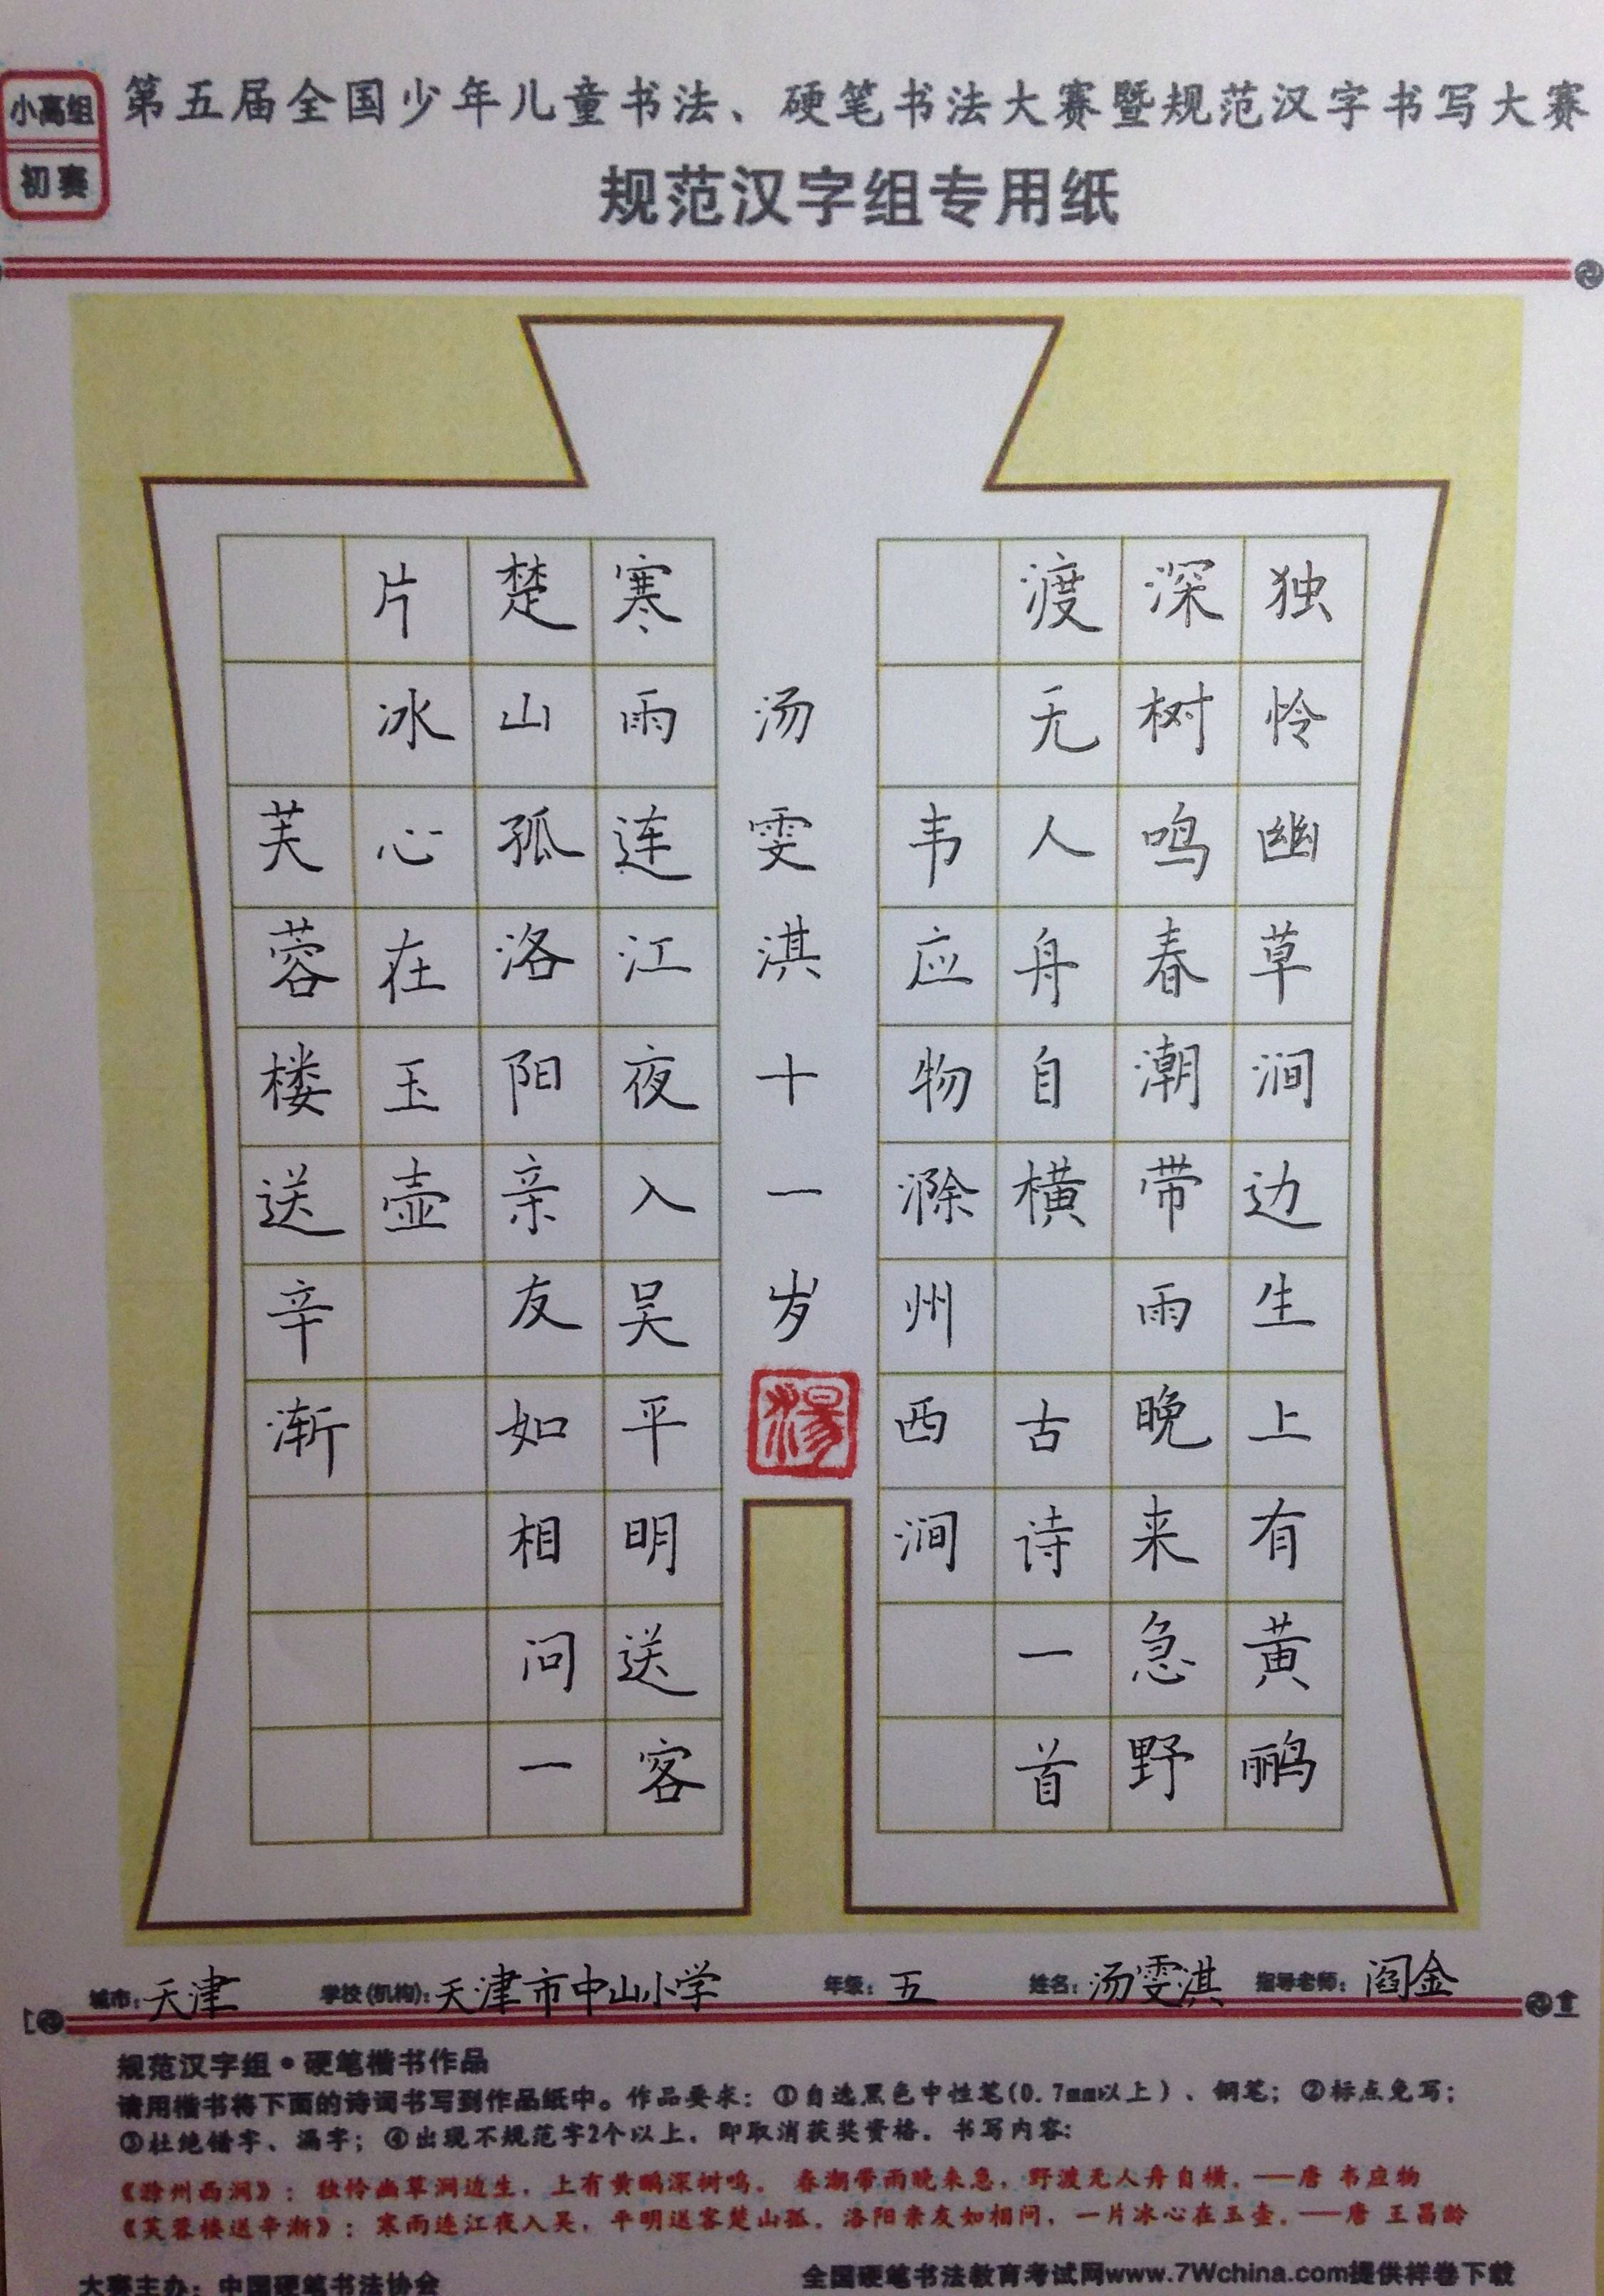 小高组
初赛
第五届全国少年儿童书法、硬笔书法大赛暨规范汉字书写大赛
规范汉字组专用纸
独怜幽草涧边生上有黄鹂
深树鸣春潮带雨晚来急野
渡无人舟自横 古诗一首
韦应物滁州西涧
汤雯淇十一岁
湯
寒雨连江夜入吴平明送客
楚山孤洛阳亲友如相问一
片冰心在玉壶
芙蓉楼送辛渐
城市：天津 学校(机构)：天津市中山小学 年级：五 姓名：汤雯淇 指导老师：阎金
规范汉字组•硬笔楷书作品
请用楷书将下面的诗词书写到作品纸中。作品要求：①自选黑色中性笔(0.7mm以上)、钢笔；②标点免写；
③杜绝错字、漏字；④出现不规范字2个以上，即取消获奖资格。书写内容：
《滁州西涧》：独怜幽草涧边生，上有黄鹂深树鸣。春潮带雨晚来急，野渡无人舟自横。——唐 韦应物
《芙蓉楼送辛渐》：寒雨连江夜入吴，平明送客楚山孤。洛阳亲友如相问，一片冰心在玉壶。——唐 王昌龄
大赛主办：中国硬笔书法协会 全国硬笔书法教育考试网www.7Wchina.com提供样卷下载